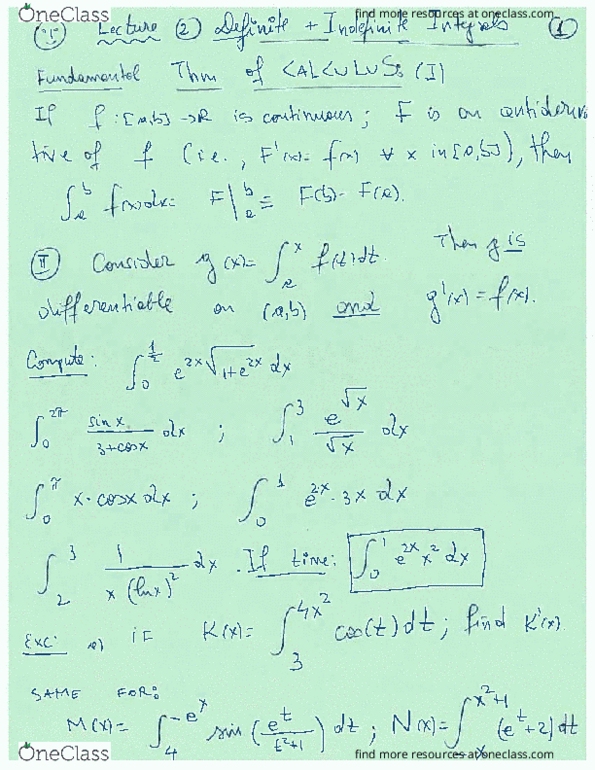 OneClass find more resources at oneclass.com
Lecture (2) Definite + Indefinite Integrals (1)
Fundamental Thm of CALCULUS: (I)
If f:[a,b] → R is continuous; F is an antideriva
tive of f (i.e., F'(x)= f(x) ∀ x in [a,b]), then
∫_a^b f(x)dx = F|_a^b ≡ F(b)- F(a).
(II) Consider g(x)= ∫_a^x f(t)dt. Then g is
differentiable on (a,b) and g'(x)=f(x).
Compute: ∫_0^{1/2} e^{2x}√(1+e^{2x}) dx
∫_0^{2π} sin x/(3+cosx) dx ; ∫_1^3 e^{√x}/√x dx
∫_0^π x·cosx dx ; ∫_0^1 e^{2x}·3x dx
∫_2^3 1/(x(lnx)^2) dx . If time: ∫_0^1 e^{2x} x^2 dx
Exc: a) if K(x)= ∫_3^{4x^2} cos(t)dt; find K'(x)
SAME FOR:
M(x)= ∫_4^{-e^x} sin(e^t/(t^2+1)) dt ; N(x)= ∫_{-x}^{x^2+1} (e^t+2)dt
OneClass find more resources at oneclass.com